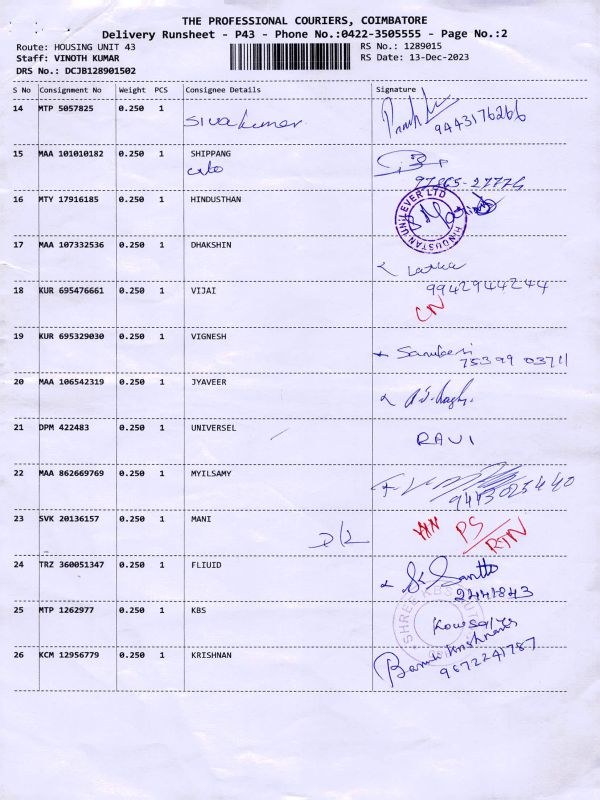 THE PROFESSIONAL COURIERS, COIMBATORE
Delivery Runsheet - P43 - Phone No.:0422-3505555 - Page No.:2
Route: HOUSING UNIT 43 RS No.: 1289015
Staff: VINOTH KUMAR RS Date: 13-Dec-2023
DRS No.: DCJB128901502
S No Consignment No Weight PCS Consignee Details Signature
14 MTP 5057825 0.250 1
Sivakumar 9443176266
15 MAA 101010182 0.250 1 SHIPPANG
97865-27774
16 MTY 17916185 0.250 1 HINDUSTHAN
HINDUSTAN UNILEVER LTD
17 MAA 107332536 0.250 1 DHAKSHIN
Latha
9942944244
18 KUR 695476661 0.250 1 VIJAI
CN
19 KUR 695329030 0.250 1 VIGNESH
75399 03711
20 MAA 106542319 0.250 1 JYAVEER
21 DPM 422483 0.250 1 UNIVERSEL
RAVI
22 MAA 862669769 0.250 1 MYILSAMY
9443025440
23 SVK 20136157 0.250 1 MANI
D/L PS/RTN
24 TRZ 360051347 0.250 1 FLIUID
2441843
25 MTP 1262977 0.250 1 KBS
SHREE KBS
Kowsalya
26 KCM 12956779 0.250 1 KRISHNAN
9672241787